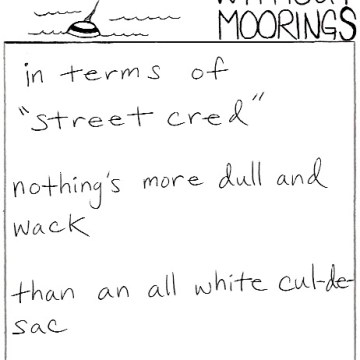 WITHOUT
MOORINGS
in terms of
"street cred"
nothing's more dull and
wack
than an all white cul-de-
sac